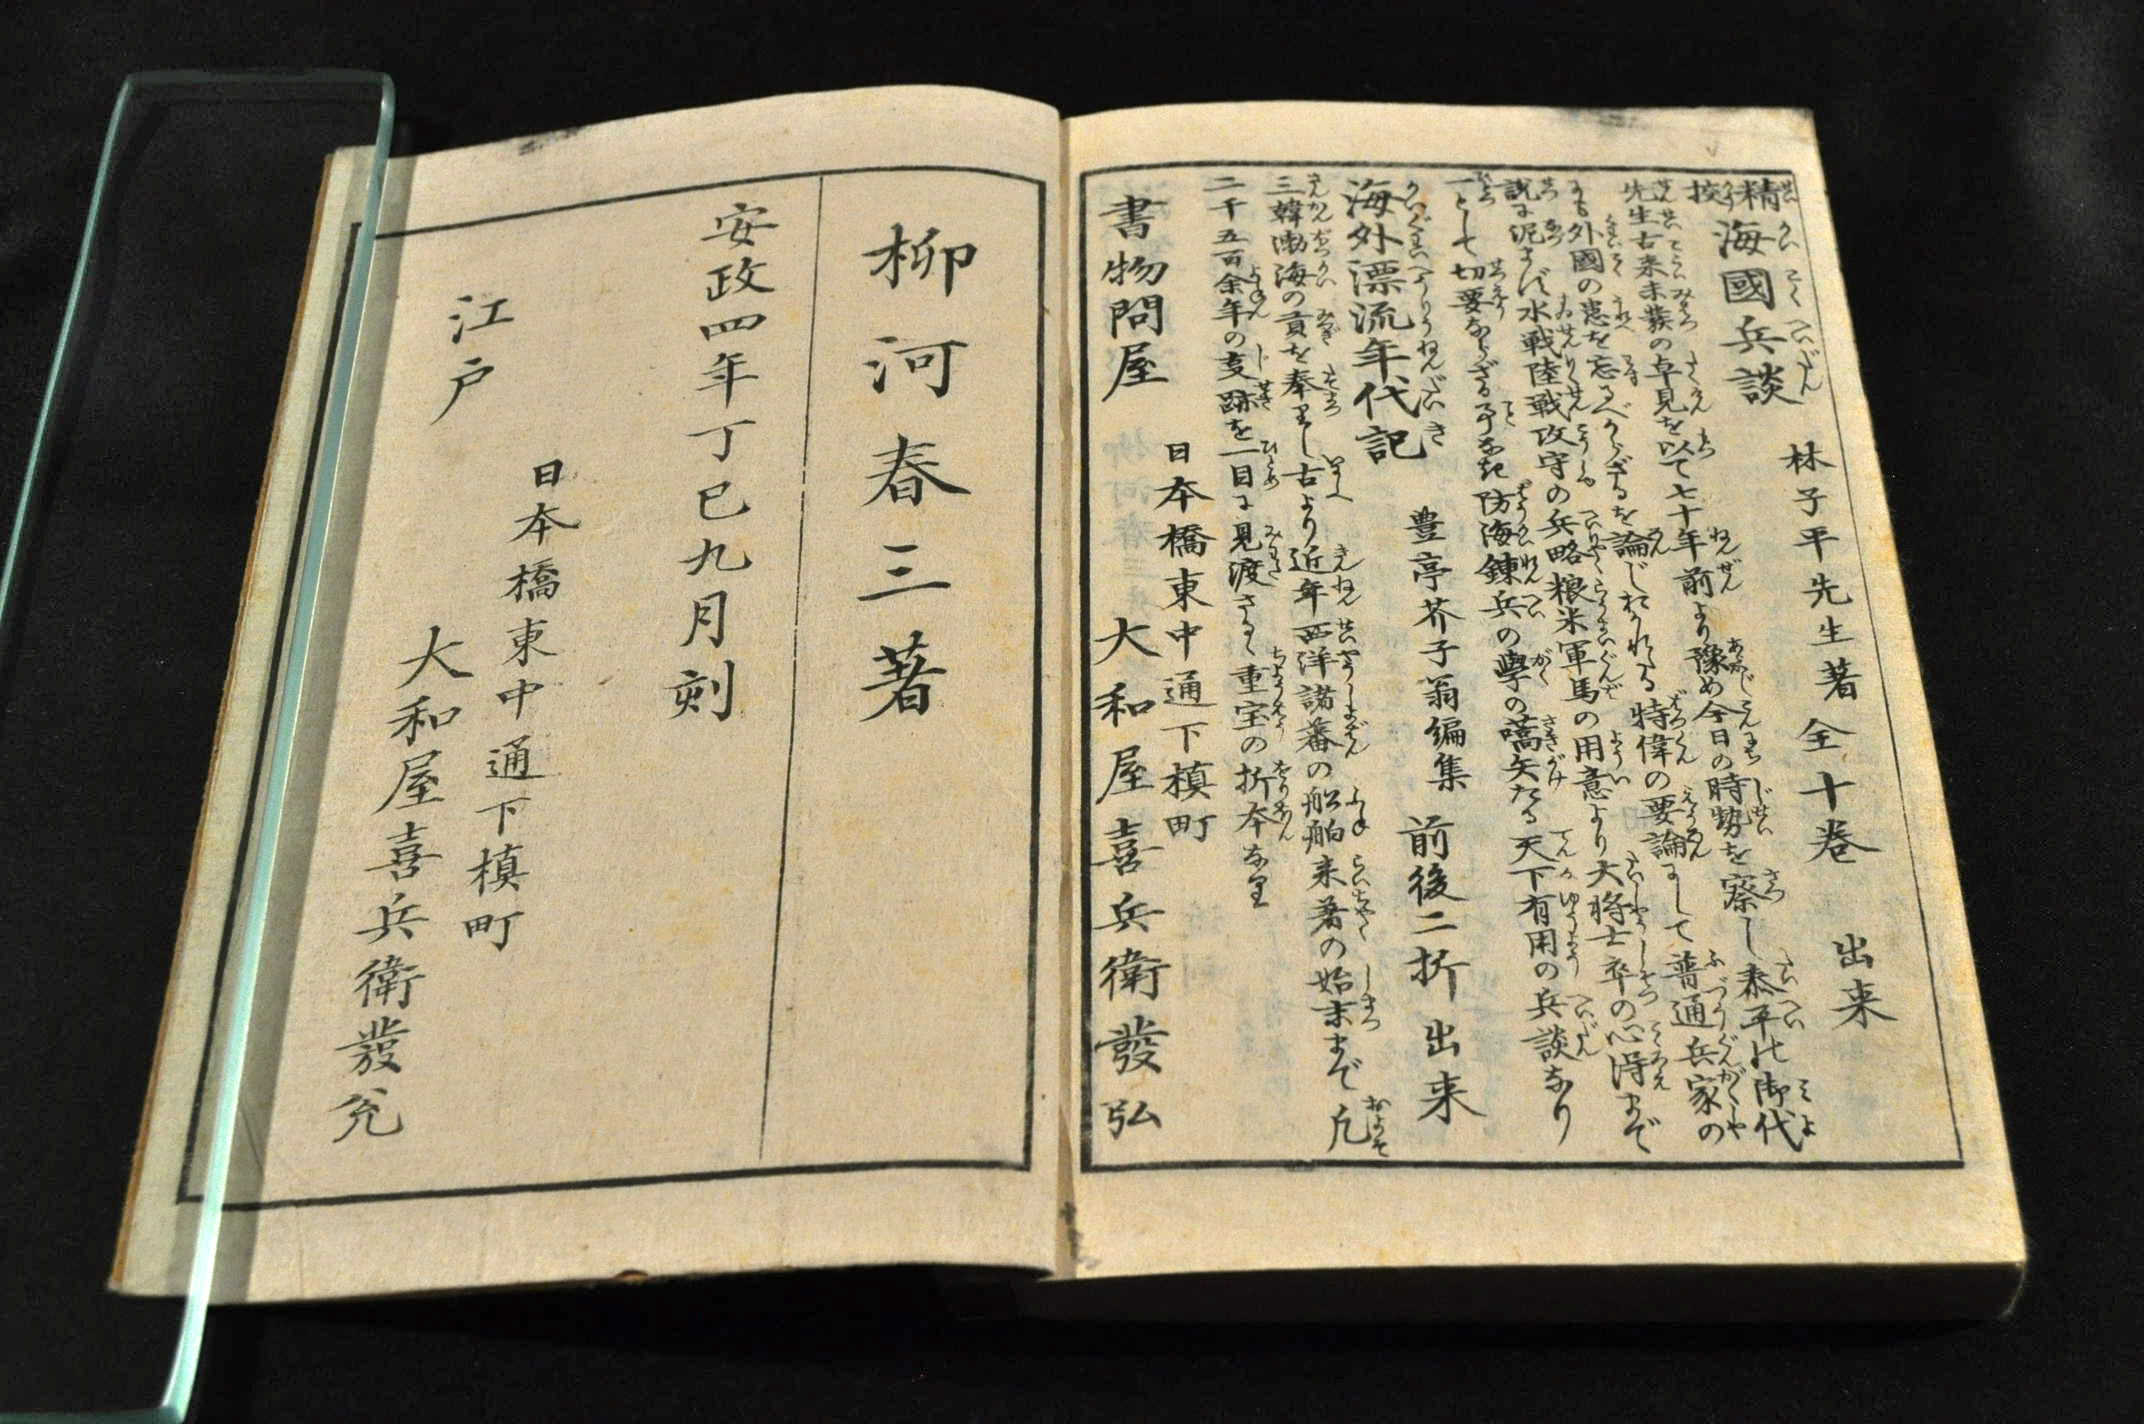 精校 海國兵談 林子平先生著 全十巻 出来
先生古来未發の卓見を以て七十年前より豫め今日の時勢を察し泰平の御代
にも外國の患を忘るべからざるを論じおかれたる特偉の要論にして普通兵家の
説に泥まず水戦陸戦攻守の兵略粮米軍馬の用意より大将士卒の心得まで
一として切要ならざる事なき防海錬兵の學の嚆矢たる天下有用の兵談なり
海外漂流年代記 豊亭芥子翁編集 前後二折 出来
三韓渤海の貢を奉りし古より近年西洋諸蕃の船舶来著の始末まで凡
二千五百余年の支跡を一目に見渡さるゝ重宝の折本なり
日本橋東中通下槙町
書物問屋 大和屋喜兵衛發弘
柳河春三著
安政四年丁巳九月刻
日本橋東中通下槙町
江戸 大和屋喜兵衛發兌